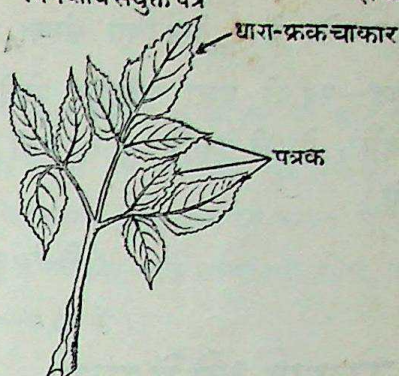 संयुक्त पत्र
धारा-क्रकचाकार
पत्रक